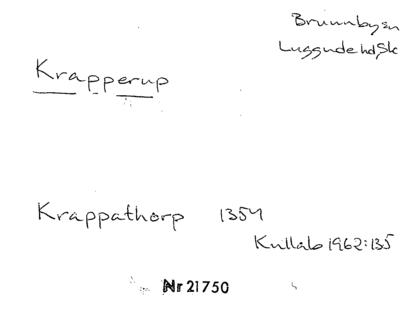 Brunnby sn
Luggude hd Sk
Krapperup
Krappathorp 1354
Kullab 1962:135
Nr 21750